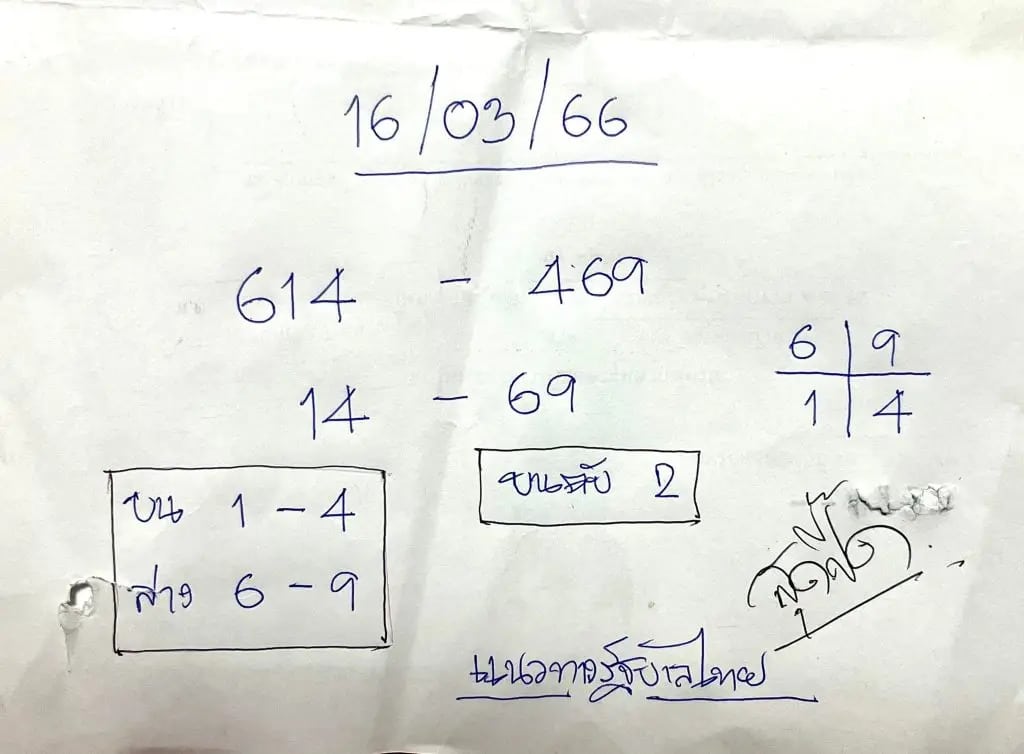 16/03/66
614 - 469
6 9
1 4
14 - 69
บน 1 - 4
ล่าง 6 - 9
2
แนวทางรัฐบาลไทย